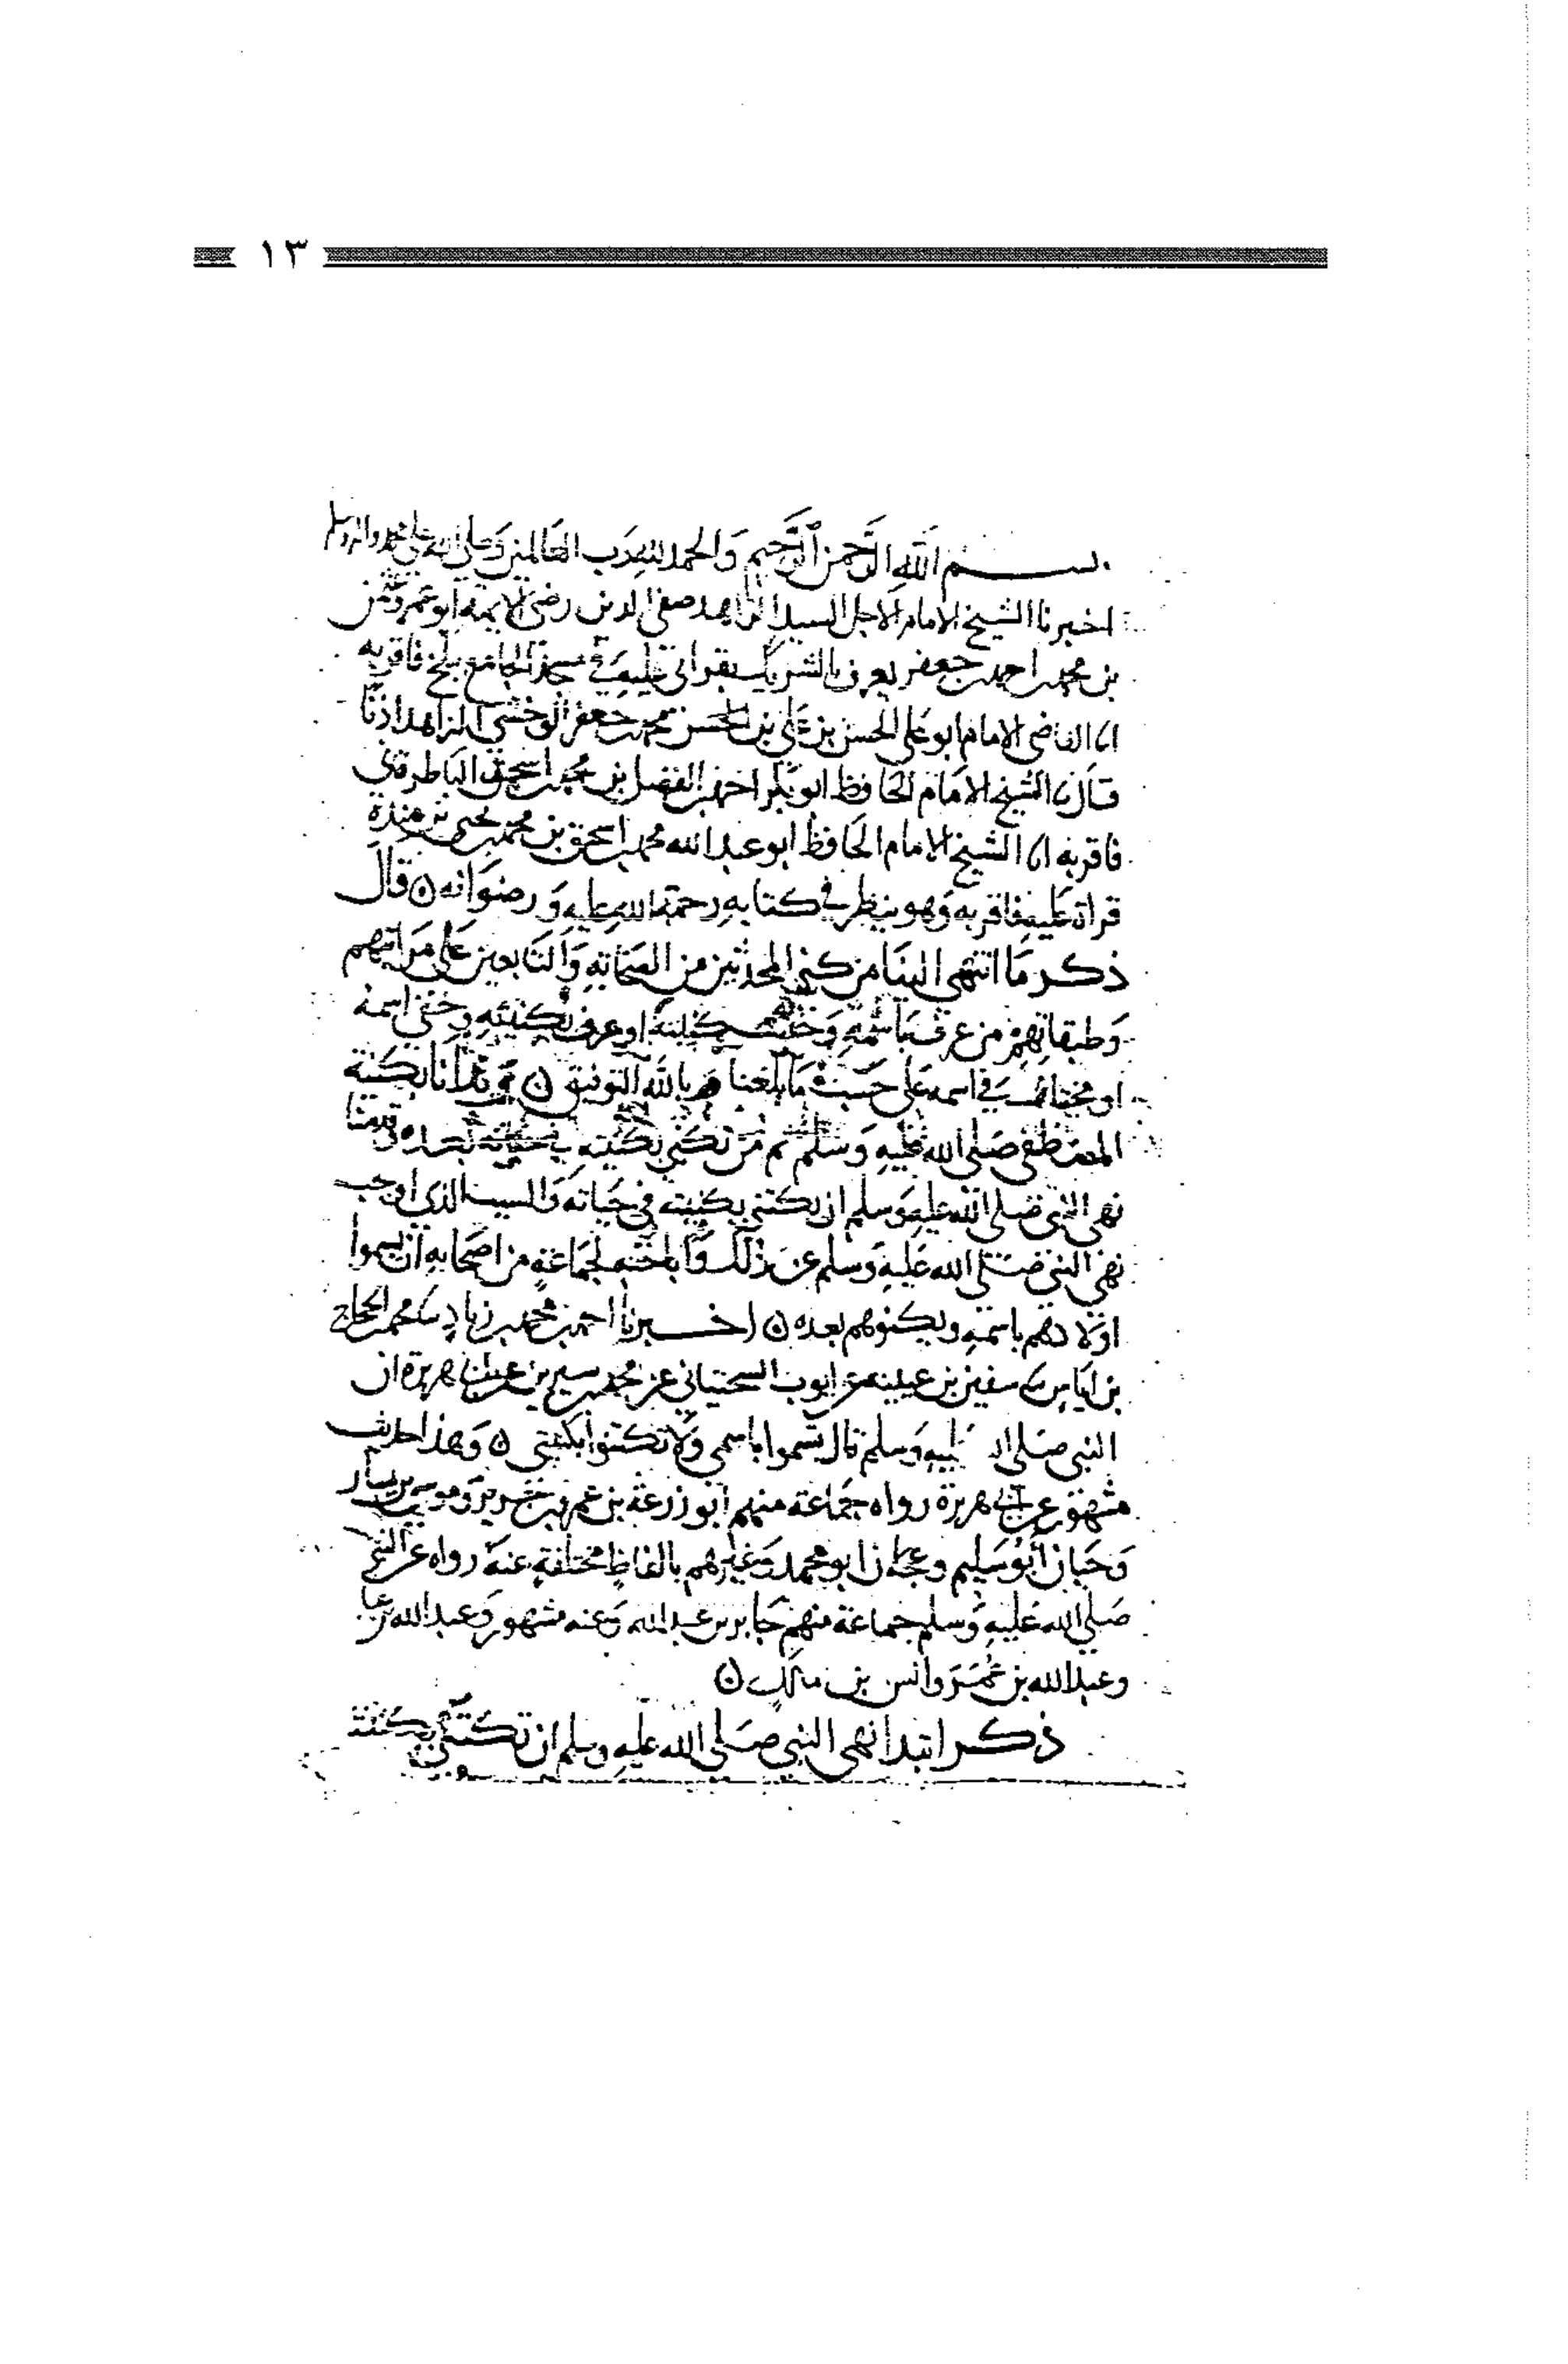 ١٣
بسم الله الرحمن الرحيم والحمد لله رب العالمين وصلى الله على محمد واله وسلم
اخبرنا الشيخ الامام الاجل السيد الزاهد صفي الدين رضي الايمة ابو عمرو عثمن
بن محمد بن احمد بن جعفر يعرف بالشريك بقراتي عليه في مسجد الجامع ببلخ فاقر به
انا القاضي الامام ابو علي الحسن بن علي بن الحسن محمد بن جعفر الوخشي الزاهد اذنا
قال انا الشيخ الامام الحافظ ابو بكر احمد بن الفضل بن محمد بن اسحق الباطرقاني
فاقر به انا الشيخ الامام الحافظ ابو عبد الله محمد بن اسحق بن محمد بن يحيى بن منده
قراة عليه فاقر به وهو ينظر في كتابه رحمة الله عليه ورضوانه ن قال
ذكر ما انتهى الينا من كنى المحدثين من الصحابة والتابعين على مراتبهم
وطبقاتهم من عرف باسمه وكنيته او عرف بكنيته وخفي اسمه
او مختلف في اسمه على حسب ما بلغنا وبالله التوفيق ن بدانا بكنية
المصطفى صلى الله عليه وسلم ثم من تكنى بكنيته في حياته بعده وقدمنا
نهي النبي صلى الله عليه وسلم ان يكتنى بكنيته في حياته والسبب الذي اوجب
نهي النبي صلى الله عليه وسلم عن ذلك واباحته لجماعة من اصحابه ان يسموا
اولادهم باسمه ويكنوهم بعده ن اخبرنا احمد بن محمد بن زياد نا محمد الحجاج
بن اياس نا سفين بن عيينه عن ايوب السختياني عن محمد بن سيرين عن ابي هريرة ان
النبي صلى الله عليه وسلم قال تسموا باسمي ولا تكتنوا بكنيتي ن وهذا حديث
مشهور عن ابي هريرة رواه جماعة منهم ابو زرعة بن عمرو بن جرير وموسى بن يسار
وحيان ابو سليم وعجلان ابو محمد وغيرهم بالفاظ مختلفة عنه رواه عن النبي
صلى الله عليه وسلم جماعة منهم جابر بن عبد الله وعنه مشهور وعبد الله بن عباس
وعبد الله بن عمر وانس بن مالك ن
ذكر ابتدا نهي النبي صلى الله عليه وسلم ان تكتنى بكنيته